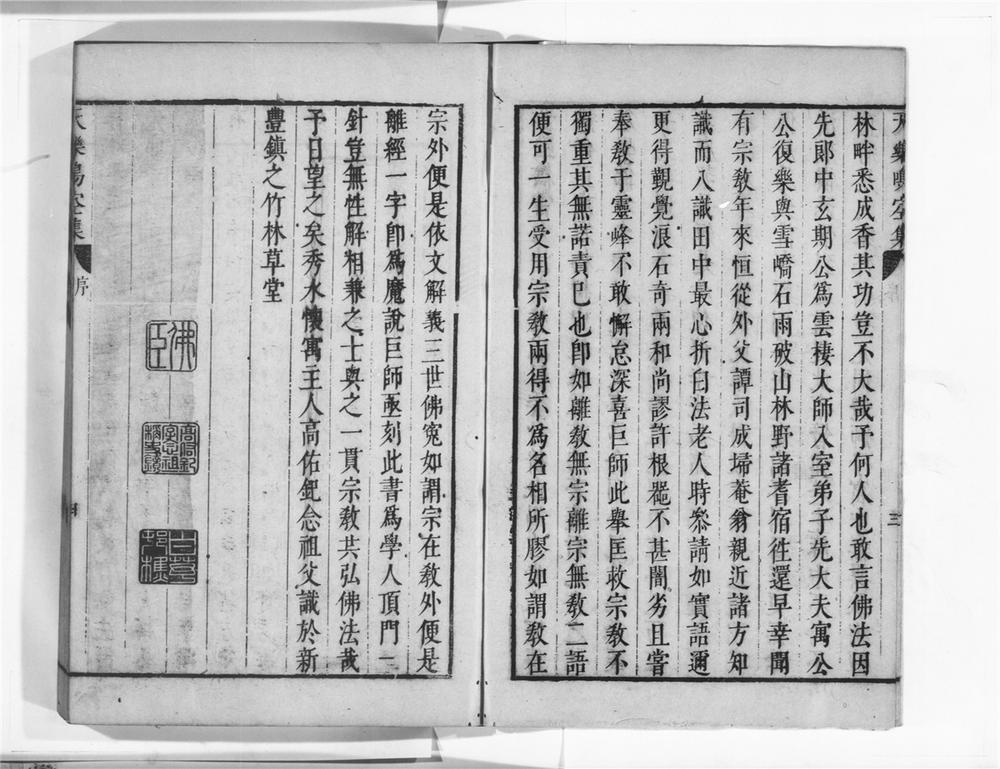 林畔悉成香其功豈不大哉予何人也敢言佛法因
先郎中玄期公為雲棲大師入室弟子先大夫寓公
公復樂與雪嶠石雨破山林野諸耆宿徃還早幸聞
有宗教年來恒從外父譚司成埽菴翁親近諸方知
識而八識田中最心折臼法老人時叅請如實語邇
更得覲覺浪石奇兩和尚謬許根器不甚闇劣且嘗
奉教于靈峰不敢懈怠深喜巨師此舉匡救宗教不
獨重其無諾責已也卽如離教無宗離宗無教二語
便可一生受用宗教兩得不為名相所膠如謂教在
三
宗外便是依文解義三世佛寃如謂宗在教外便是
離經一字卽為魔說巨師亟刻此書為學人頂門一
針豈無性解相兼之士與之一貫宗教共弘佛法哉
予日望之矣秀水懷寓主人高佑釲念祖父識於新
豐鎮之竹林草堂
佛臣
天樂鳴空集
序